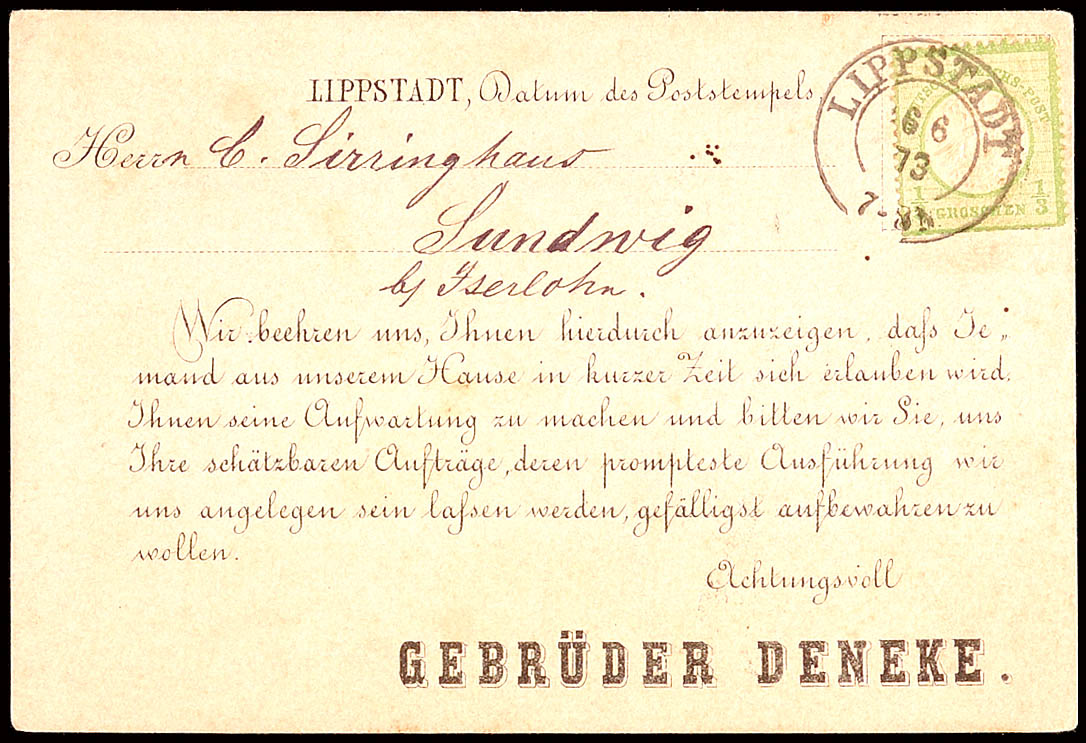 LIPPSTADT, Datum des Poststempels.
LIPPSTADT
6 6
73
GROSCHEN
1/3
1/3
Herrn C. Sirringhaus
Sundwig
b/ Iserlohn.
Wir beehren uns, Ihnen hierdurch anzuzeigen, daſs Je„
mand aus unserem Hause in kurzer Zeit sich erlauben wird,
Ihnen seine Aufwartung zu machen und bitten wir Sie, uns
Ihre schätzbaren Aufträge, deren prompteste Ausführung wir
uns angelegen sein laſsen werden, gefälligst aufbewahren zu
wollen.
Achtungsvoll
GEBRÜDER DENEKE.